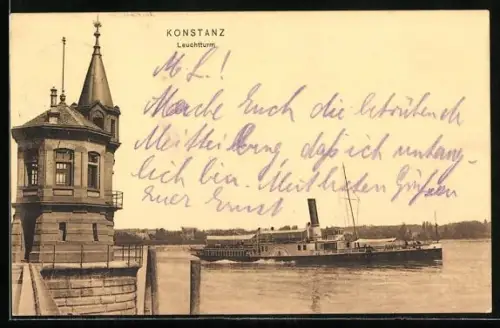 KONSTANZ
Leuchtturm.
M. L.!
Mache Euch die betrübende
Mitteilung, daß ich untaug-
lich bin. Mit besten Grüßen
Euer Ernst